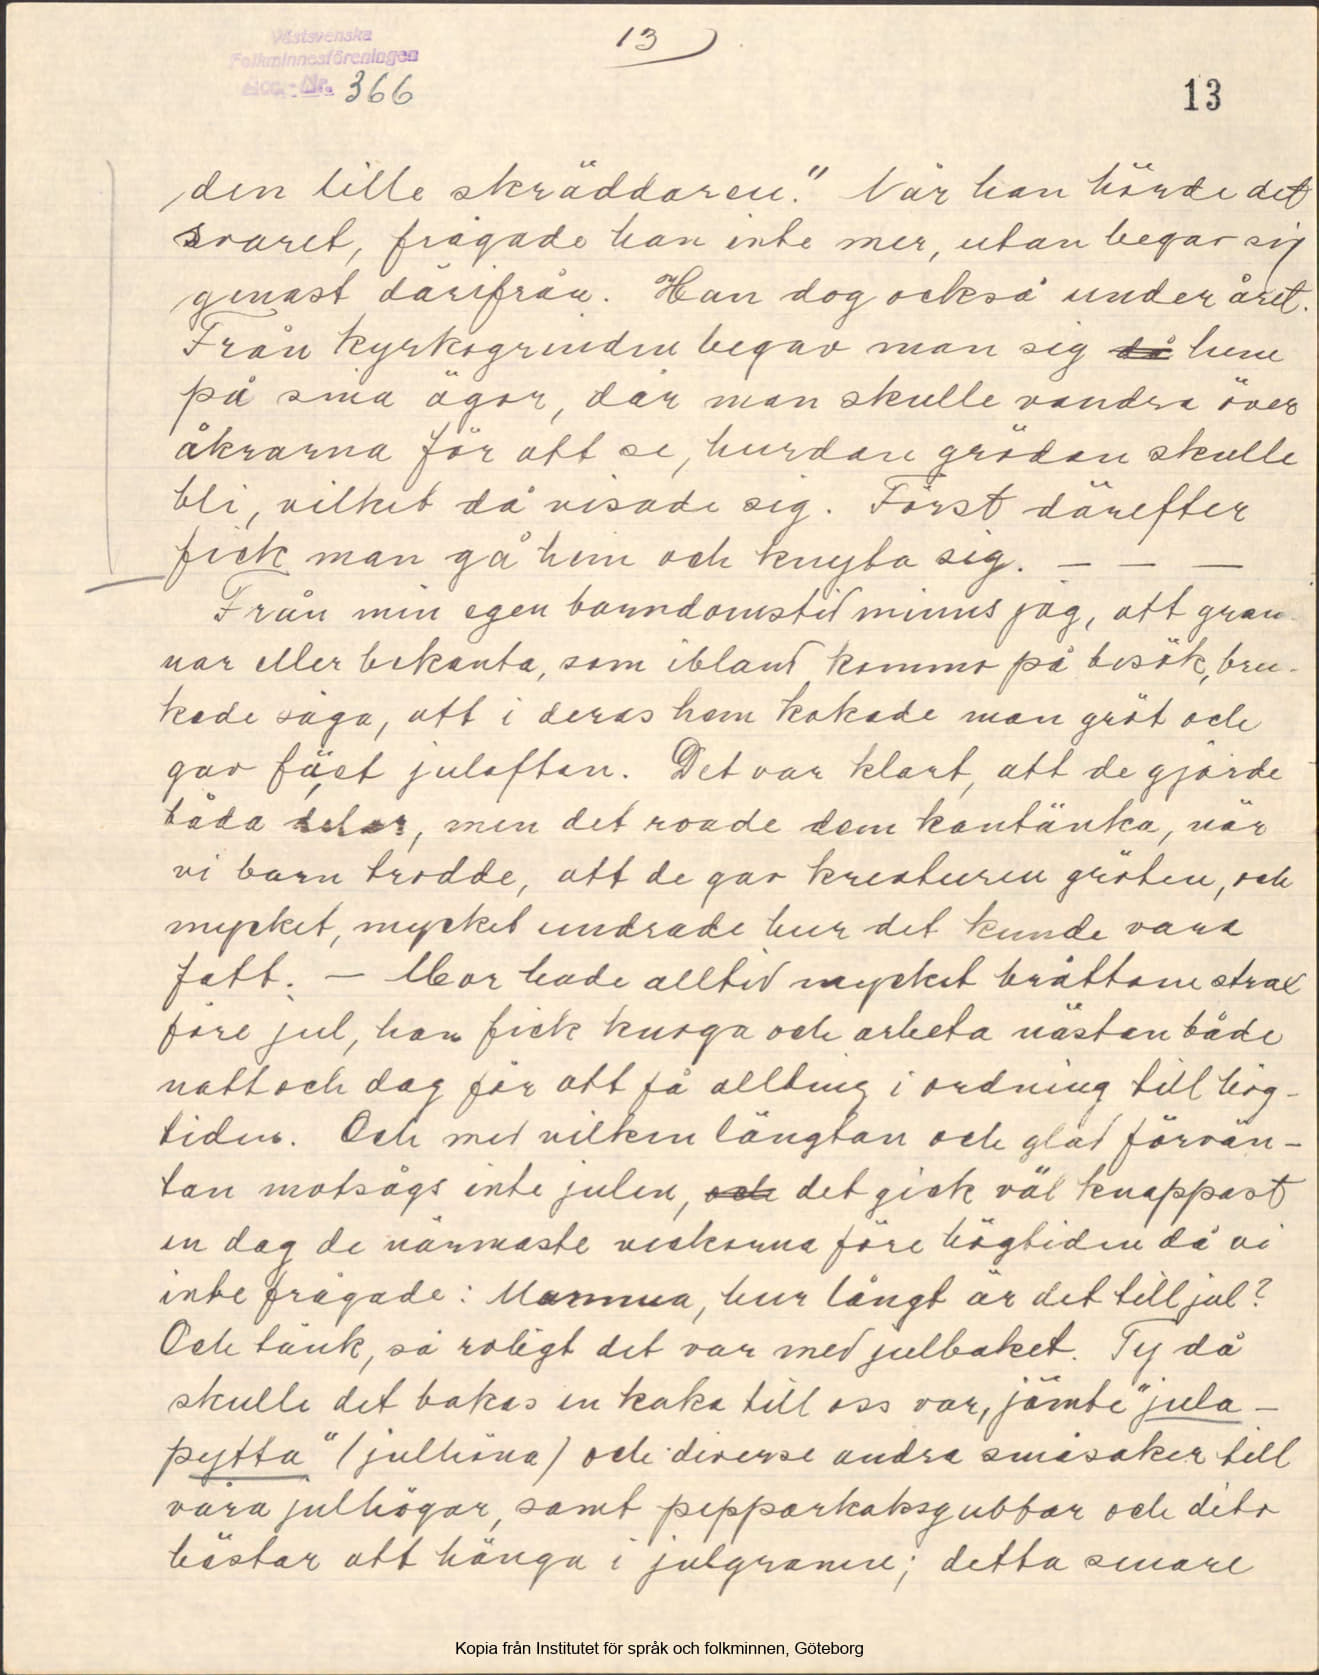 Västsvenska
Folkminnesföreningen
Acc. Nr. 366
13
13
den lille skräddaren." När han hörde det
svaret, frågade han inte mer, utan begav sig
genast därifrån. Han dog också under året.
Från kyrkogrinden begav man sig då hem
på sina ägor, där man skulle vandra över
åkrarna för att se, hurdan grödan skulle
bli, vilket då visade sig. Först därefter
fick man gå hem och knyta sig. — — —
Från min egen barndomstid minns jag, att gran-
nar eller bekanta, som ibland kommo på besök, bru-
kade säga, att i deras hem kokade man gröt och
gav fäet julafton. Det var klart, att de gjorde
båda delar, men det roade dem kantänka, när
vi barn trodde, att de gav kreaturen gröten, och
mycket, mycket undrade hur det kunde vara
fatt. — Mor hade alltid mycket bråttom strax
före jul, hon fick knoga och arbeta nästan både
natt och dag för att få allting i ordning till hög-
tiden. Och med vilken längtan och glad förvän-
tan motsågs inte julen, och det gick väl knappast
en dag de närmaste veckorna före högtiden då vi
inte frågade: Mamma, hur långt är det till jul?
Och tänk, så roligt det var med julbaket. Ty då
skulle det bakas en kaka till oss var, jämte "jula-
pytta" (julhöna) och diverse andra småsaker till
våra julhögar, samt pepparkaksgubbar och dito
hästar att hänga i julgranen; detta senare
Kopia från Institutet för språk och folkminnen, Göteborg